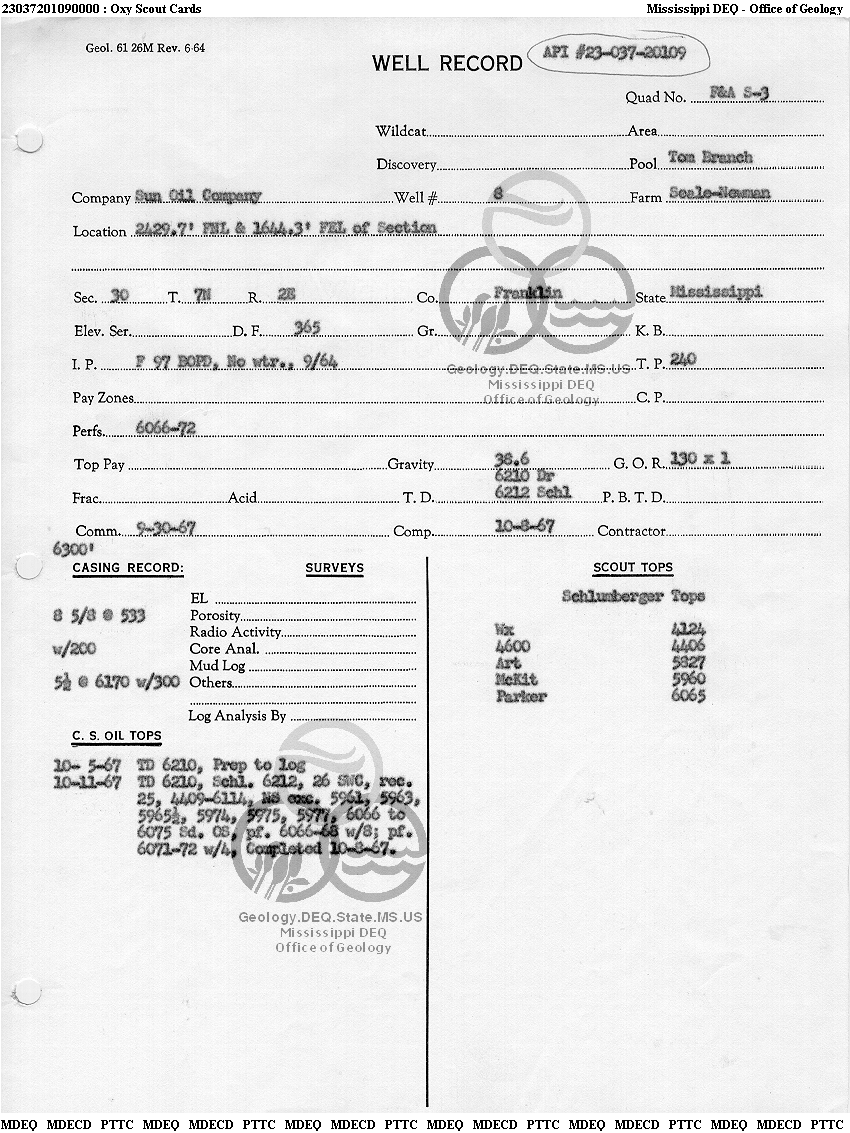 23037201090000 : Oxy Scout Cards Mississippi DEQ - Office of Geology
Geol. 61 26M Rev. 6-64
WELL RECORD API #23-037-20109
Quad No. F&A S-3
Wildcat Area
Discovery Pool Tom Branch
Company Sun Oil Company Well # 8 Farm Seale-Newman
Location 2429.7' FNL & 1644.3' FEL of Section
Sec. 30 T. 7N R. 2E Co. Franklin State Mississippi
Elev. Ser. D. F. 365 Gr. K. B.
I. P. F 97 BOPD, No wtr., 9/64 T. P. 240
Geology.DEQ.State.MS.US
Mississippi DEQ
Office of Geology
Pay Zones C. P.
Perfs. 6066-72
Top Pay Gravity 38.6 G. O. R. 130 x 1
6210 Dr
Frac. Acid T. D. 6212 Schl P. B. T. D.
Comm. 9-30-67 Comp. 10-8-67 Contractor
6300'
CASING RECORD: SURVEYS SCOUT TOPS
EL Schlumberger Tops
8 5/8 @ 533 Porosity
Radio Activity Wx 4124
w/200 Core Anal. 4600 4406
Mud Log Art 5827
5½ @ 6170 w/300 Others McKit 5960
Parker 6065
Log Analysis By
C. S. OIL TOPS
10- 5-67 TD 6210, Prep to log
10-11-67 TD 6210, Schl. 6212, 26 SWC, rec.
25, 4409-6114, NS exc. 5961, 5963,
5965½, 5974, 5975, 5977, 6066 to
6075 Sd. OS, pf. 6066-68 w/8; pf.
6071-72 w/4, Completed 10-8-67.
Geology.DEQ.State.MS.US
Mississippi DEQ
Office of Geology
MDEQ MDECD PTTC MDEQ MDECD PTTC MDEQ MDECD PTTC MDEQ MDECD PTTC MDEQ MDECD PTTC MDEQ MDECD PTTC